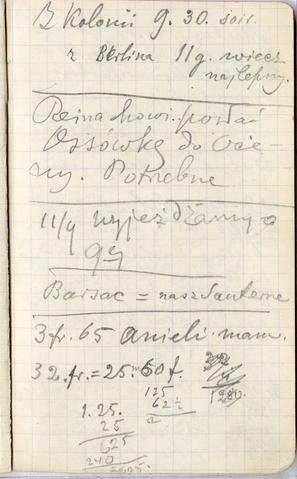 Z Kolonii 9. 30. soir.
z Berlina 11 g. wiecz
najlepszy.
Reinachowi posłać
Ossówkę do oce-
ny. Potrzebne
11/4 wyjeżdżamy o
9
Barsac = nasz Sauterne
3 fr. 65 Anieli mam.
32. fr. = 25 m 60 f.
125
62 ½
1. 25.
25
625
240